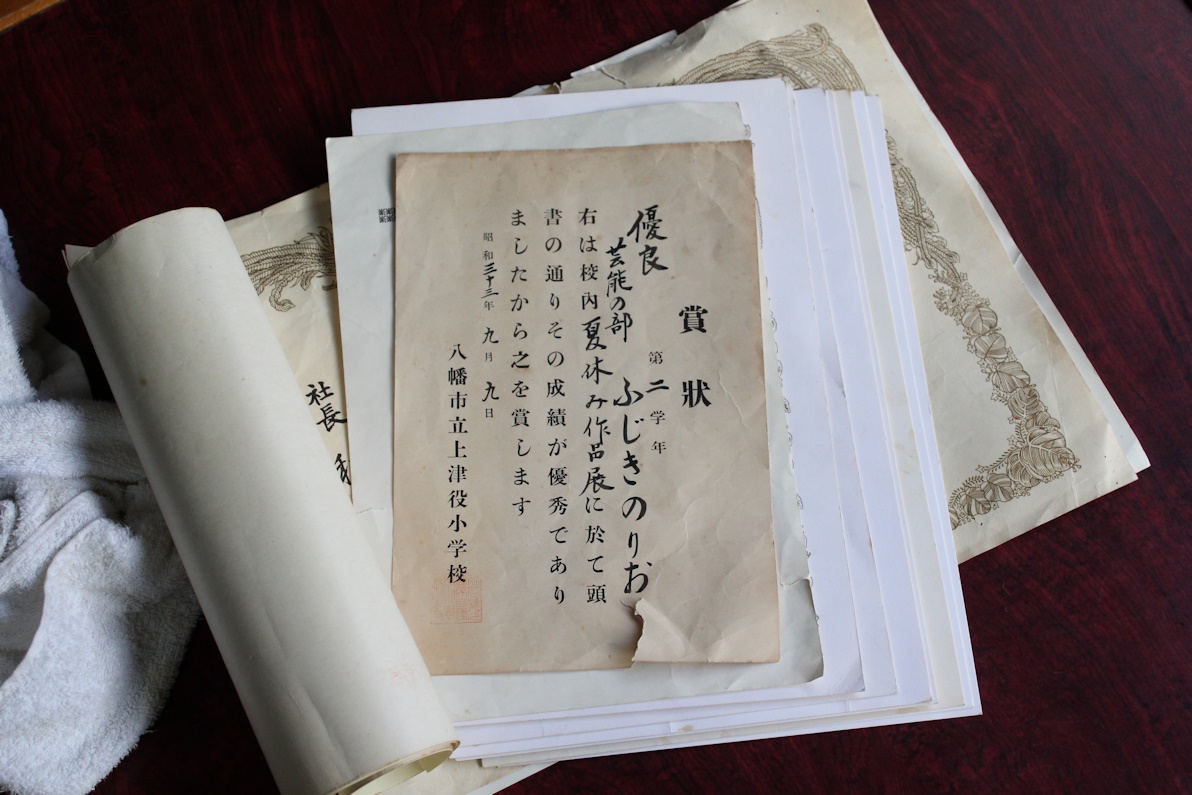 賞狀
第二学年
ふじきのりお
優良
芸能の部
右は校內夏休み作品展に於て頭
書の通りその成績が優秀であり
ましたから之を賞します
昭和三十三年九月九日
八幡市立上津役小学校
社長